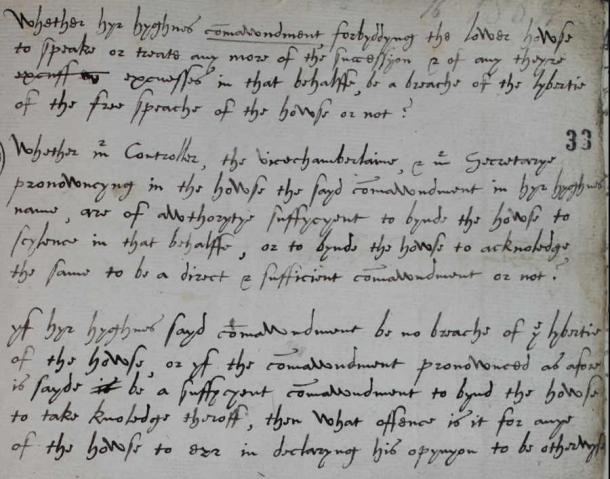 Whether hyr hyghnes comawndment forbyddyng the lower howse
to speake or treate any more of the successyon & of any theyre
excuss excusses in that behalffe, be a breache of the lybertie
of the free speache of the howse or not?
33
Whether mr Controller, the vicechamberlaine, & mr Secretarye
pronowncyng in the howse the sayd comawndment in hyr hyghnes
name, are of awthorytye suffycyent to bynde the howse to
scylence in that behalffe, or to bynde the howse to acknoledge
the same to be a direct & sufficient comawndment or not?
yf hyr hyghnes sayd comawndment be no breache of ye lybertie
of the howse, or yf the comawndment pronownced as afore
is sayde be a suffycyent comawndment to bynd the howse
to take knoledge theroff, then what offence is it for anye
of the howse to err in declaryng his opynyon to be otherwyse